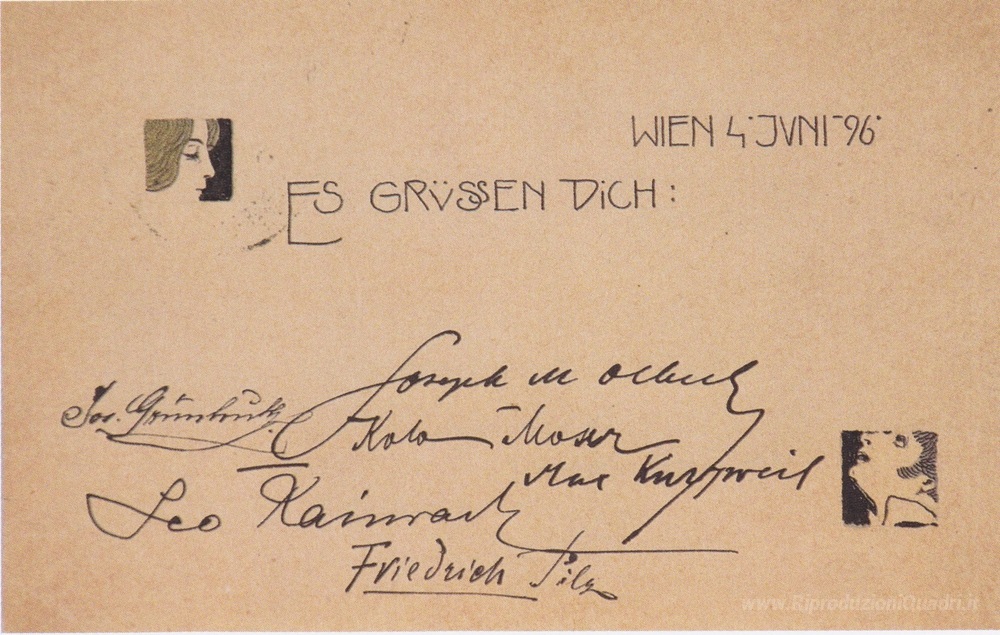 WIEN 4. JVNI 96.
ES GRÜSSEN DICH:
Joseph M Olbrich
Jos.
Kolo Moser
Max Kurzweil
Leo Kainrad
Friedrich Pilz
www.RiproduzioniQuadri.it